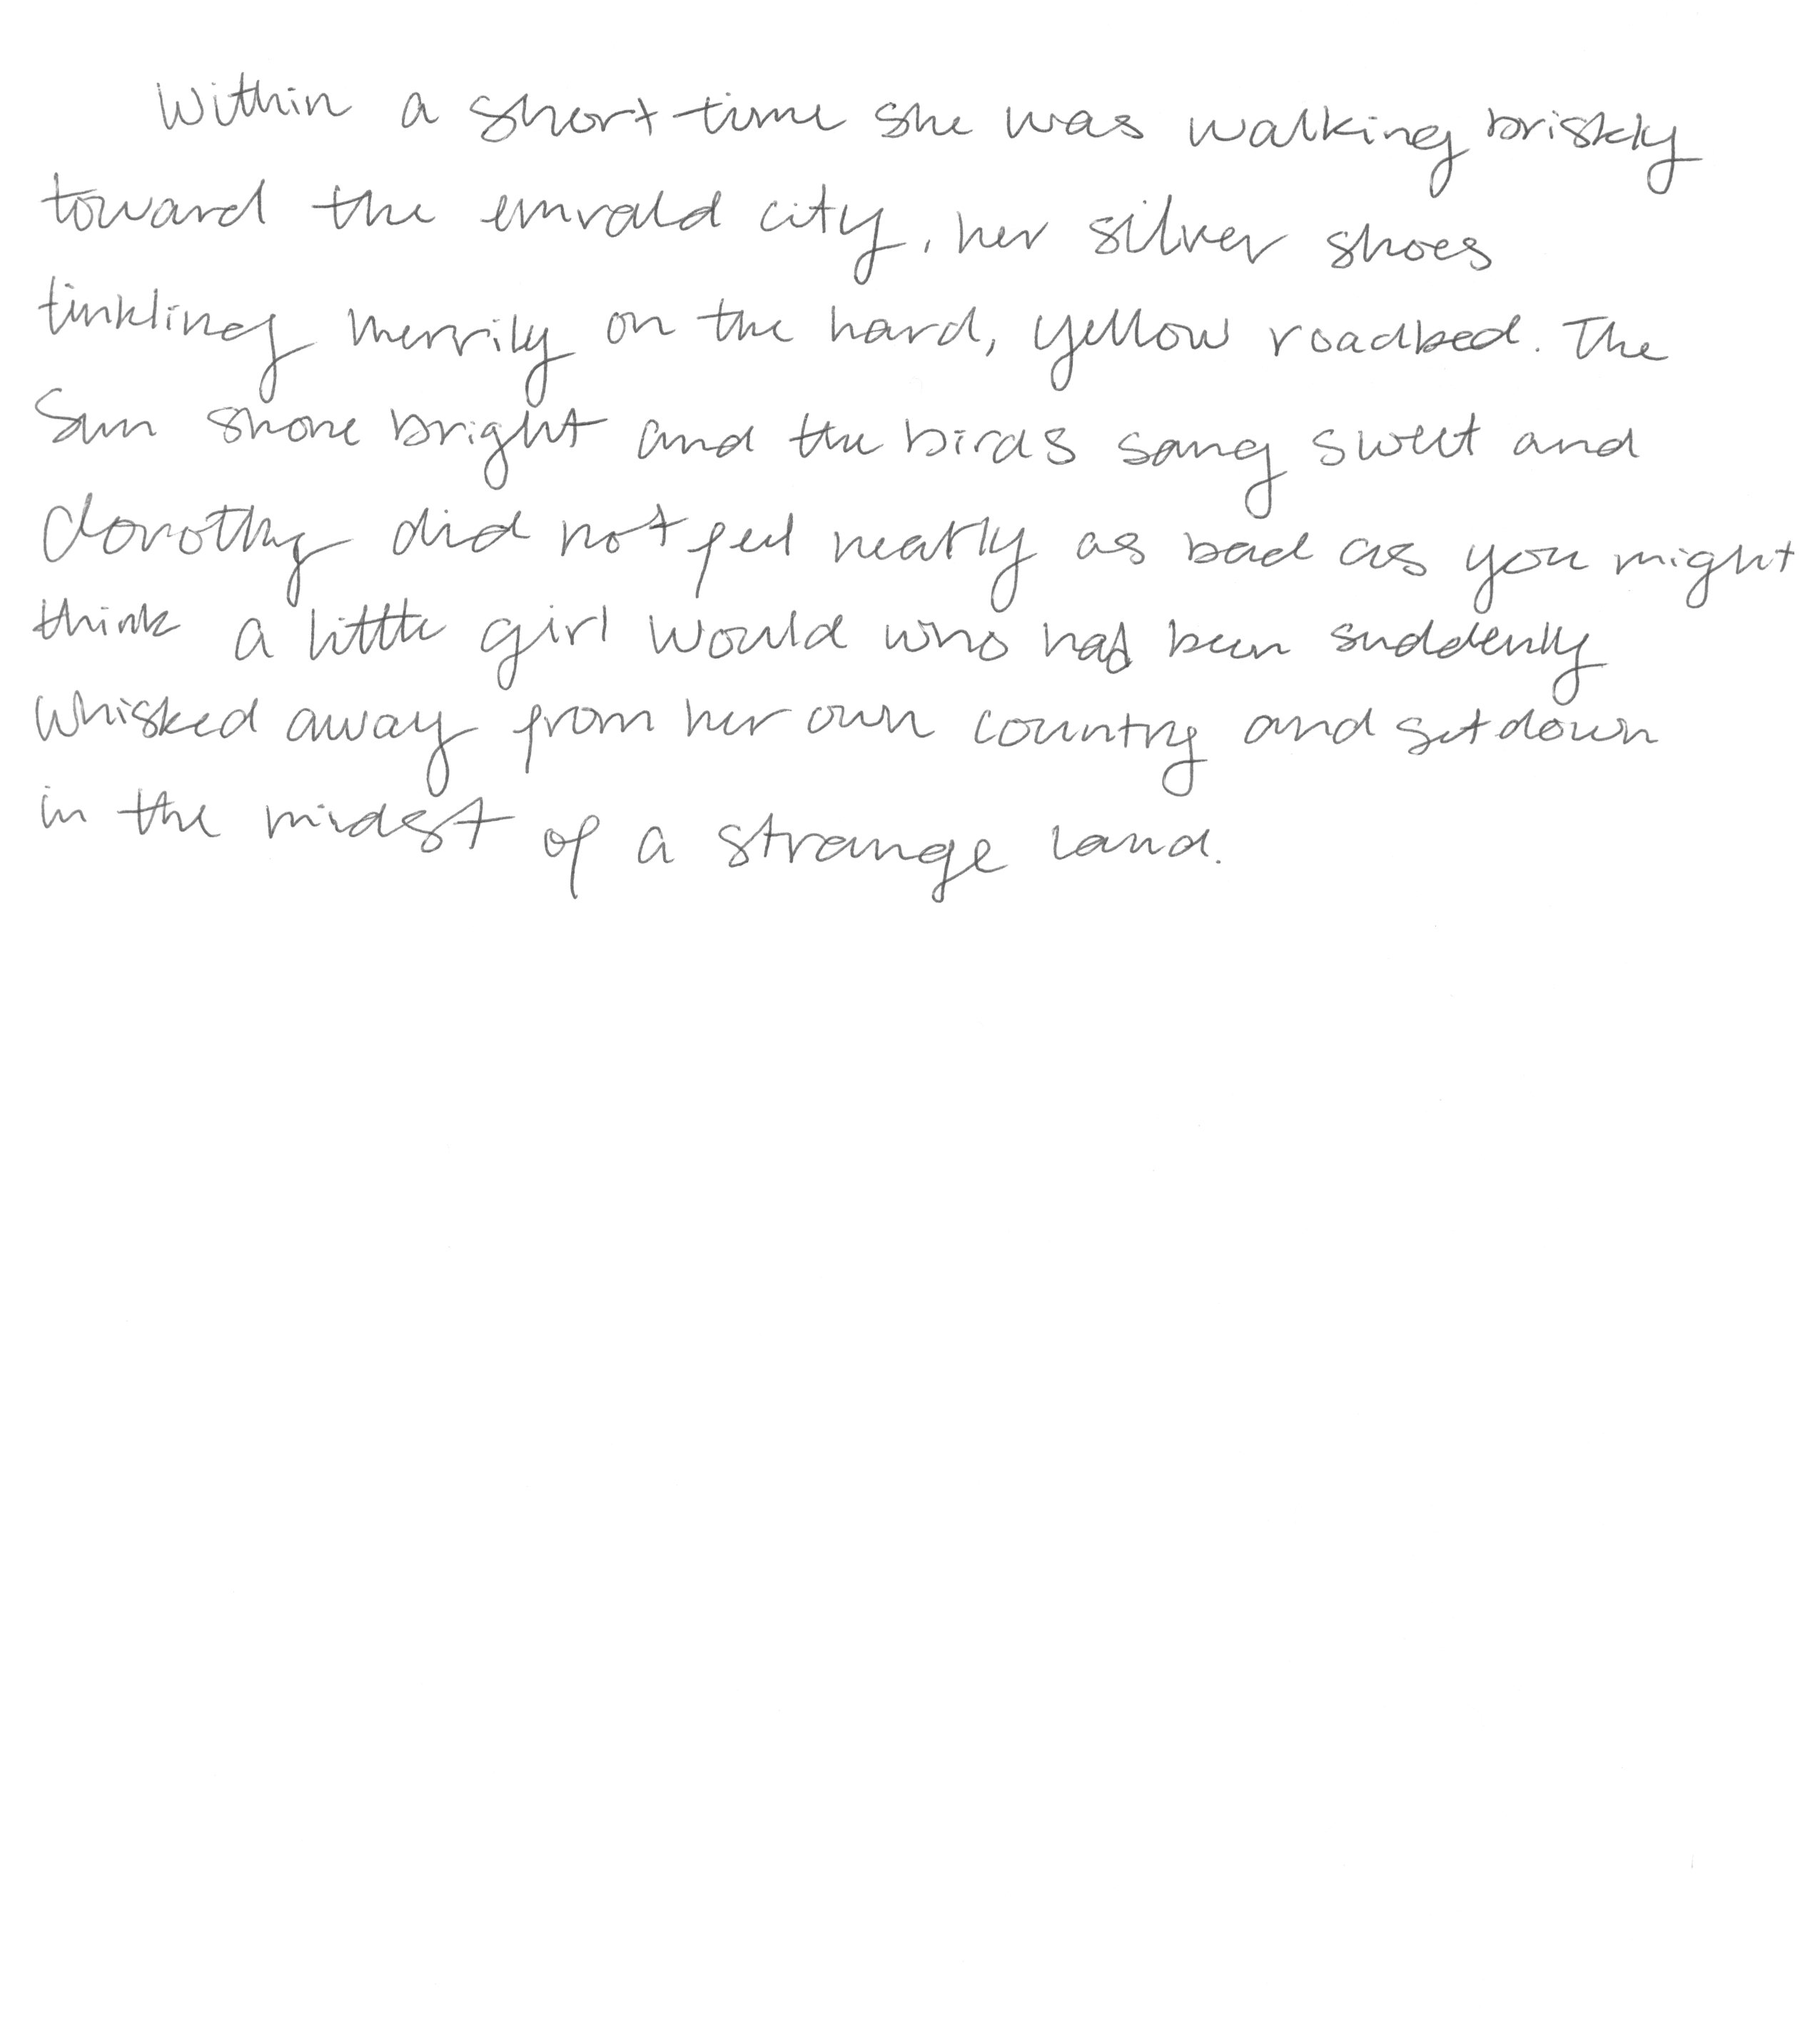 Within a short time she was walking briskly
toward the emrald city, her silver shoes
tinkling merrily on the hard, yellow roadbed. The
Sun shone bright and the birds sang sweet and
dorothy did not feel nearly as bad as you might
think a little girl would who had been suddenly
whisked away from her own country and set down
in the midst of a strange land.